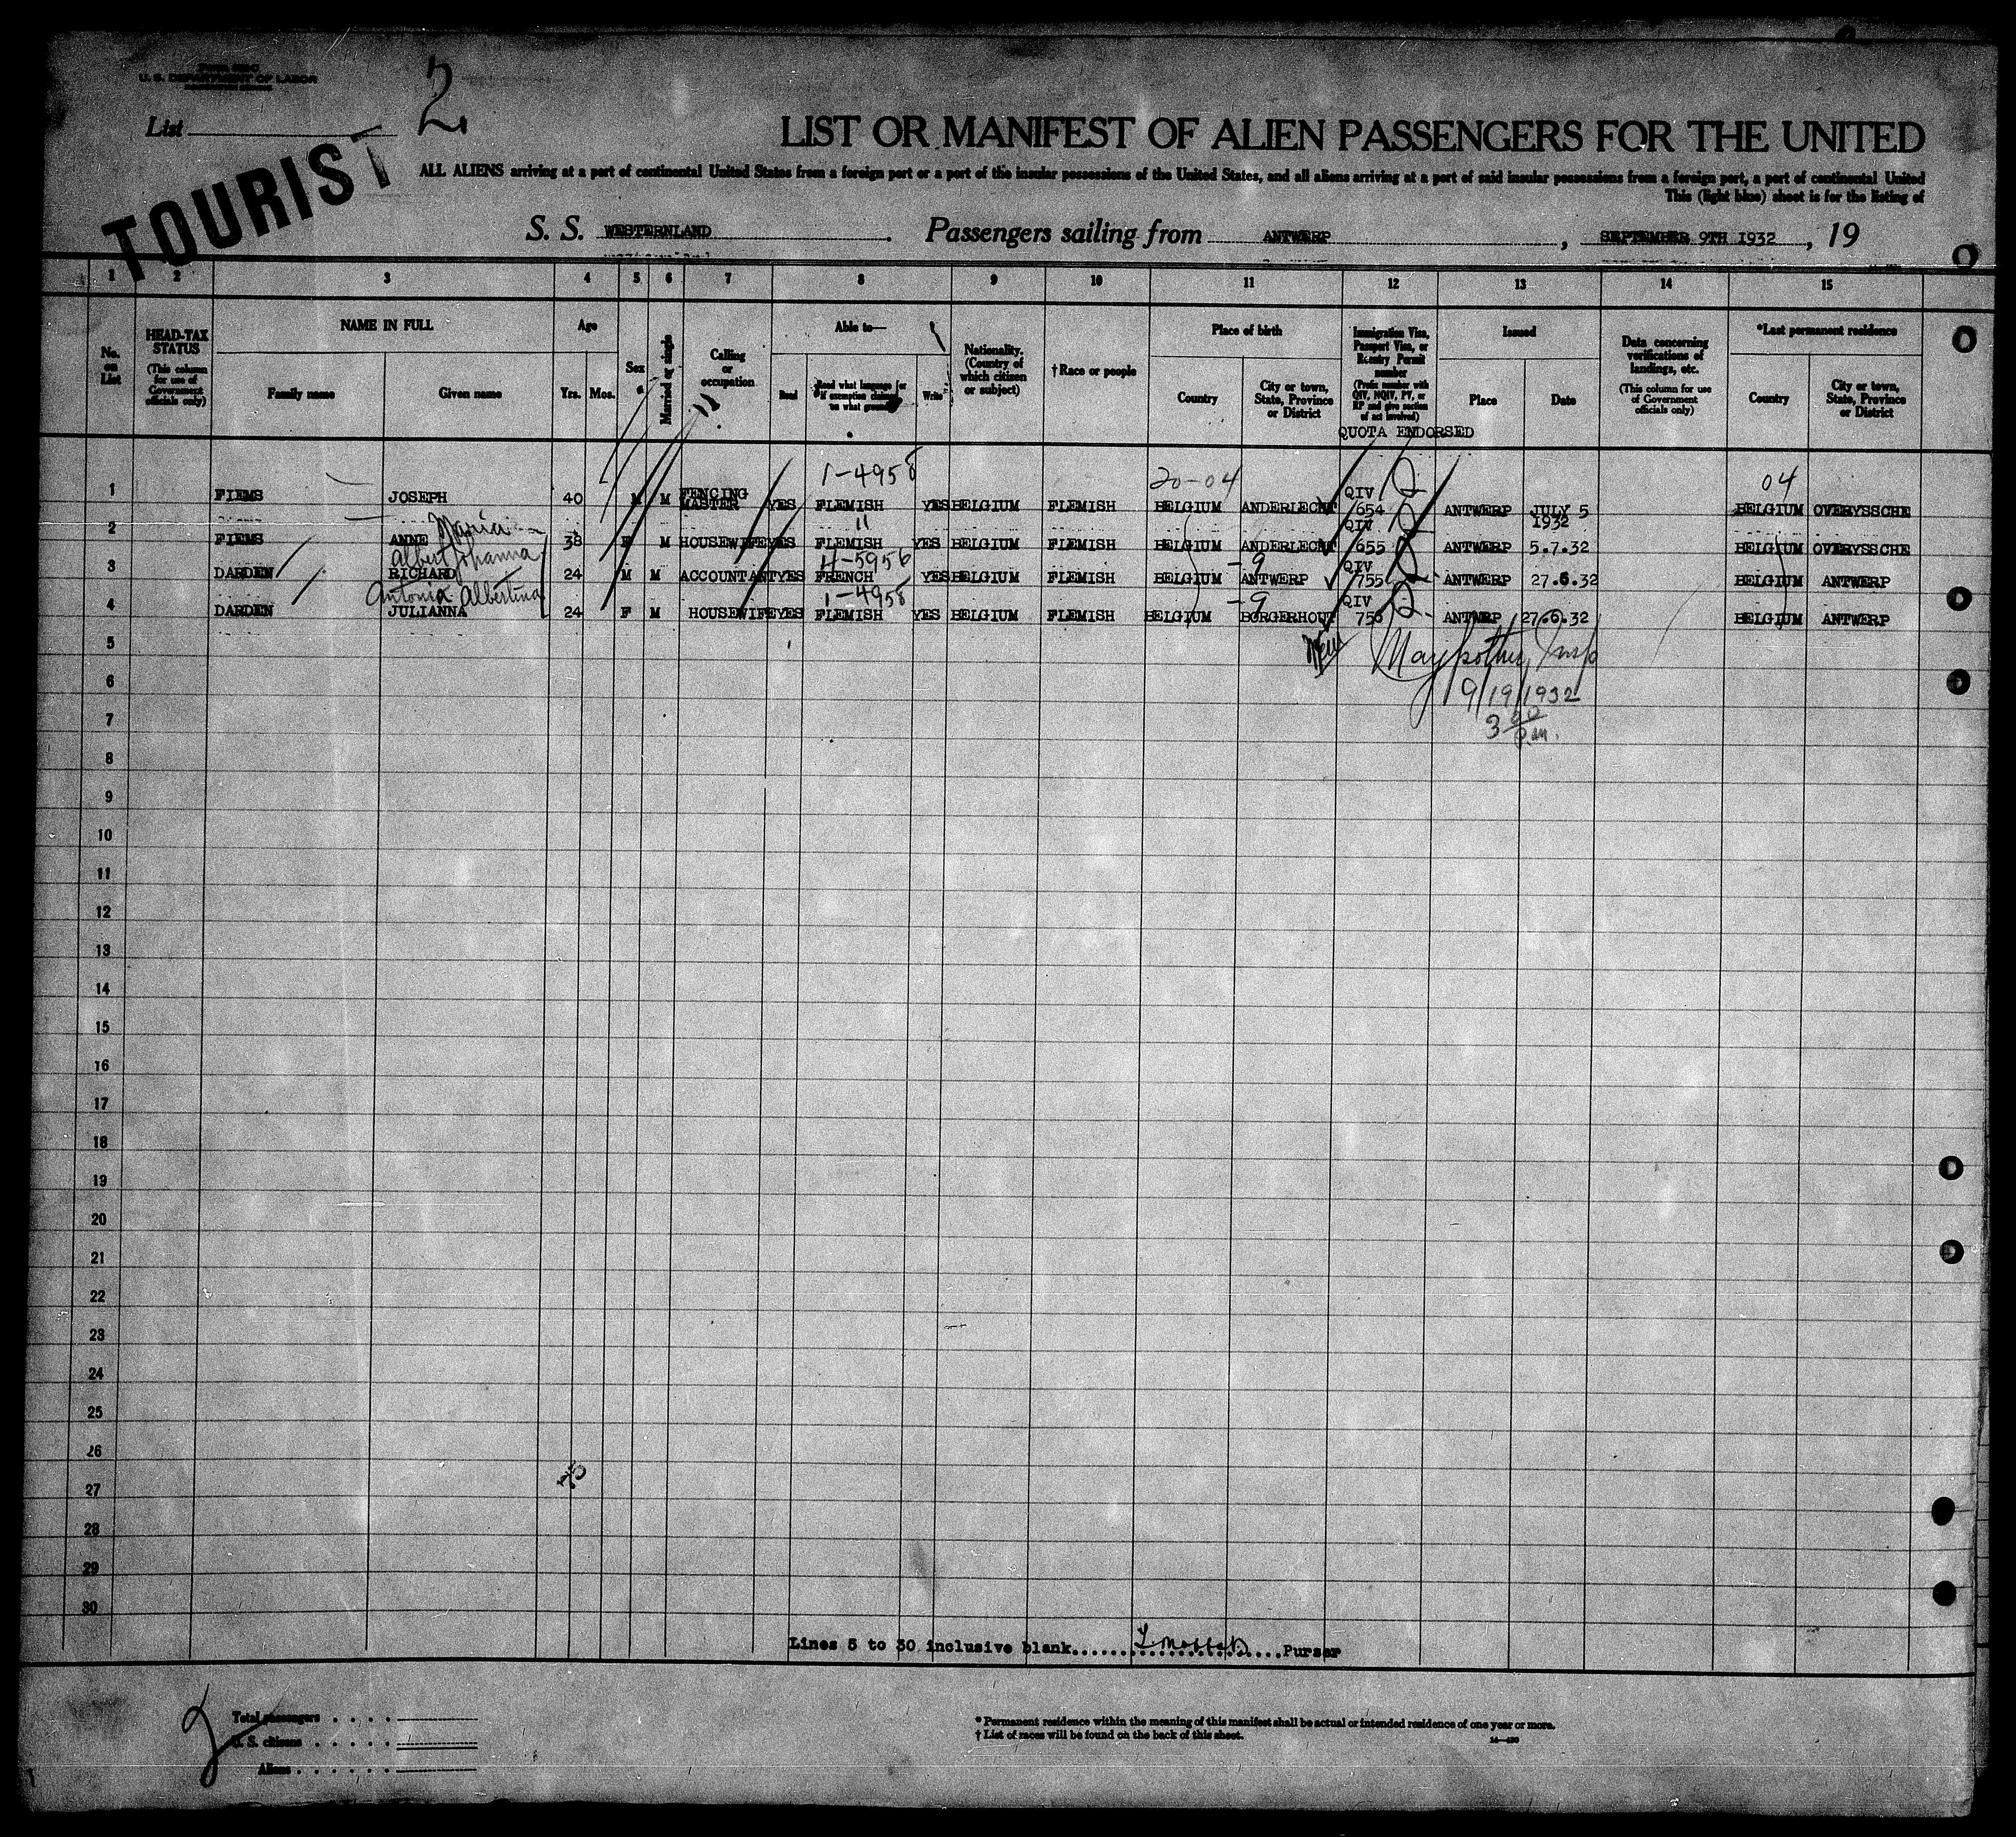 U. S. DEPARTMENT OF LABOR
List 2
TOURIST
LIST OR MANIFEST OF ALIEN PASSENGERS FOR THE UNITED
ALL ALIENS arriving at a port of continental United States from a foreign port or a port of the insular possessions of the United States, and all aliens arriving at a port of said insular possessions from a foreign port, a port of continental United
This (light blue) sheet is for the listing of
S. S. WESTERNLAND. Passengers sailing from ANTWERP, SEPTEMBER 9TH 1932, 19
1 2 3 4 5 6 7 8 9 10 11 12 13 14 15
No. on List
HEAD-TAX STATUS (This column for use of Government officials only)
NAME IN FULL
Family name Given name
Age
Yrs. Mos.
Sex
Married or single
Calling or occupation
Able to—
Read Read what language [or if exemption claimed, on what ground] Write
Nationality. (Country of which citizen or subject)
†Race or people
Place of birth
Country City or town, State, Province or District
Immigration Visa, Passport Visa, or Reentry Permit number (Prefix number with QIV, NQIV, PV, or RP and give section of act involved)
QUOTA ENDORSED
Issued
Place Date
Data concerning verifications of landings, etc. (This column for use of Government officials only)
*Last permanent residence
Country City or town, State, Province or District
1-4958 20-04 04
1 FIEMS JOSEPH 40 M M FENCING MASTER YES FLEMISH YES BELGIUM FLEMISH BELGIUM ANDERLECHT QIV 654 ANTWERP JULY 5 1932 BELGIUM OVERYSSCHE
Maria 11
2 FIEMS ANNE 38 F M HOUSEWIFE YES FLEMISH YES BELGIUM FLEMISH BELGIUM ANDERLECHT QIV 655 ANTWERP 5.7.32 BELGIUM OVERYSSCHE
Albert Johanna 4-5956 -9
3 DARDEN RICHARD 24 M M ACCOUNTANT YES FRENCH YES BELGIUM FLEMISH BELGIUM ANTWERP QIV 755 ANTWERP 27.6.32 BELGIUM ANTWERP
Antonia Albertina 1-4958 -9
4 DARDEN JULIANNA 24 F M HOUSEWIFE YES FLEMISH YES BELGIUM FLEMISH BELGIUM BORGERHOUT QIV 756 ANTWRP 27.6.32 BELGIUM ANTWERP
5
6 9/19/1932
7 3 00 P.m.
8
9
10
11
12
13
14
15
16
17
18
19
20
21
22
23
24
25
26
27
28
29
30
Lines 5 to 30 inclusive blank.......................Purser
Total passengers . . . .
U. S. citizens . . . . .
Aliens . . . . . .
* Permanent residence within the meaning of this manifest shall be actual or intended residence of one year or more.
† List of races will be found on the back of this sheet.